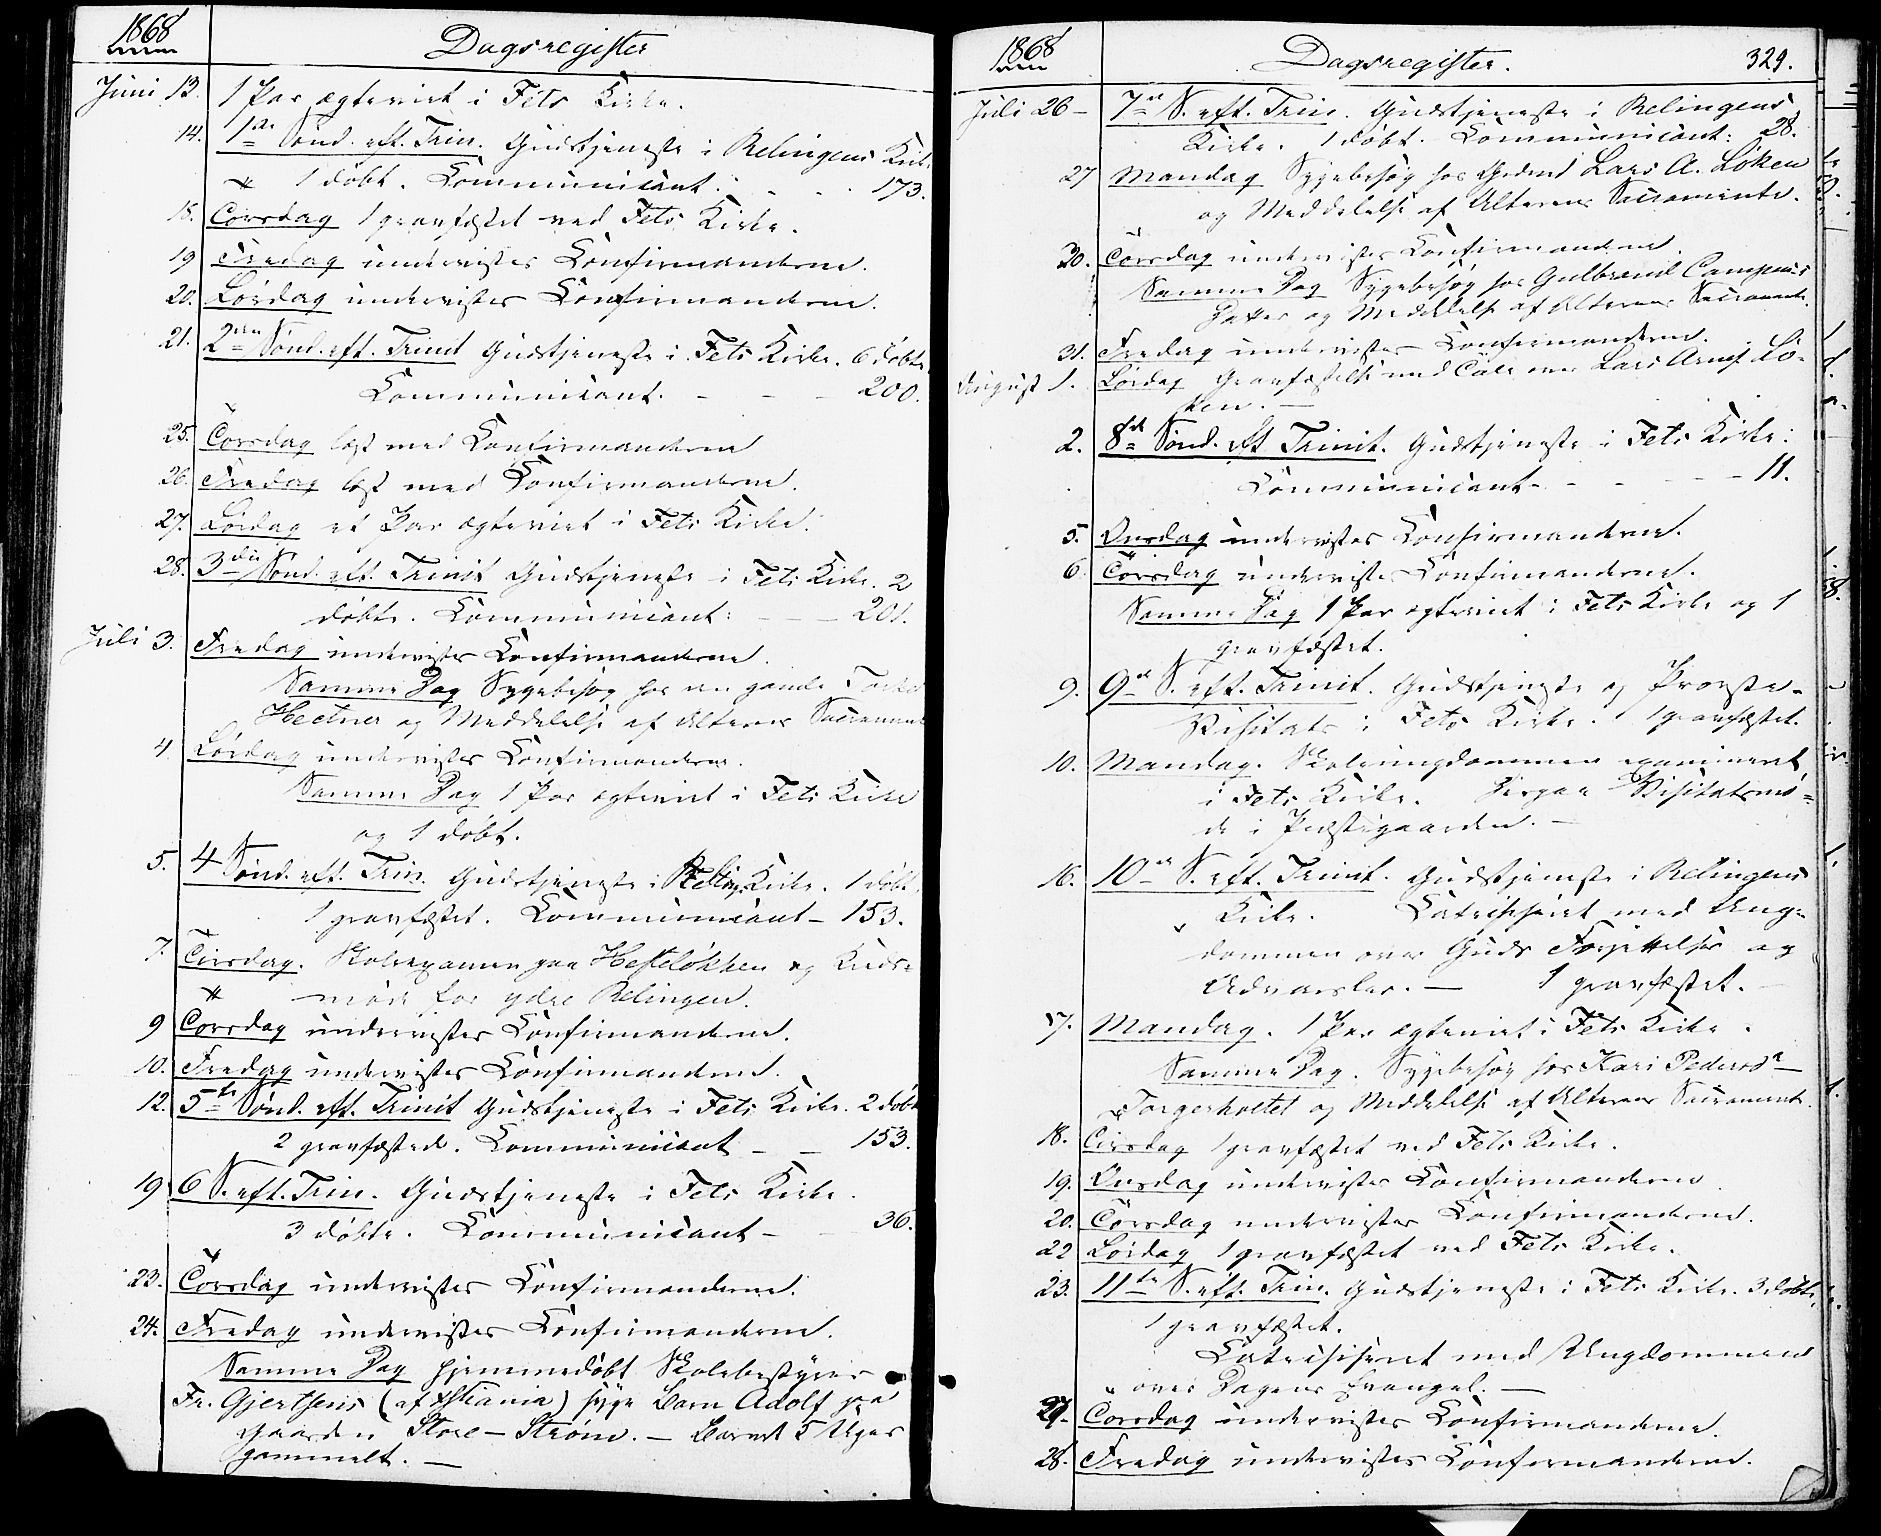 1868
Dagsregister
Juni 13. 1 Par ægteviet i Fets Kirke.
14. 1ste Sønd. eft. Trin. Gudstjeneste i Relingens Kirke
1 døbt. Communicant: - - 173.
18. Torsdag 1 gravfæstet ved Fets Kirke.
19 Fredag undervistes Confirmanderne.
20. Lørdag undervistes Confirmanderne.
21. 2den Sønd. eft. Trinit Gudstjeneste i Fets Kirke. 6 døbte.
Communicant. - - - 200.
25. Torsdag læst med Confirmanderne
26. Fredag læst med Confirmanderne.
27. Lørdag et Par ægteviet i Fets Kirke.
28. 3die Sønd. eft. Trinit Gudstjeneste i Fets Kirke. 2
døbte. Communicant: - - - 201.
Juli 3. Fredag undervistes Confirmanderne.
Samme Dag Sygebesøg hos en gamle
Hectner og Meddelelse af Alterens Sacrament
4 Lørdag undervistes Confirmanderne.
Samme Dag 1 Par ægteviet i Fets Kirke
og 1 døbt.
5. 4 Sønd. eft. Trin. Gudstjeneste i Reling. Kirke. 1 døbt.
1 gravfæstet. Communicant - 153.
7. Tirsdag. Skoleexamen paa Hesteløkken og Kreds-
møde for ydre Relingen.
9 Torsdag undervistes Confirmanderne.
10. Fredag undervistes Confirmanderne.
12. 5te Sønd. eft. Trinit Gudstjeneste i Fets Kirke. 2 døbt
2 gravfæstede. Communicant - - 153.
19 6 S. eft. Trin. Gudstjeneste i Fets Kirke.
3 døbte. Communicant - - 36.
23. Torsdag undervistes Confirmanderne.
24. Fredag undervistes Confirmanderne.
Samme Dag hjemmedøbt Skolebestyrer
Fr. Gjertsens (af Xstiania) syge Barn Adolf paa
Gaarden Store-Strøm. - Barnet 5 Uger
gammelt. -
1868
Dagsregister.
329.
Juli 26 - 7de S. eft. Trin. Gudstjeneste i Relingens
Kirke. 1 døbt. Communicant: 28.
27 Mandag Sygebesøg hos Lars A. Løken
og Meddelelse af Alterens Sacramente.
30. Torsdag undervistes Confirmanderne.
Samme Dag Sygebesøg hos Gulbrand
Datter og Meddelelse af Alterens Sacramente.
31. Fredag undervistes Confirmanderne.
August 1. Lørdag Gravfæstelse med Tale over Lars Arnes. Lø-
ken. -
2. 8de Sønd. eft Trinit. Gudstjeneste i Fets Kirke:
Communicant - - - - - 11.
5. Onsdag undervistes Confirmanderne.
6. Torsdag undervistes Confirmanderne.
Samme Dag 1 Par ægteviet i Fets Kirke og 1
gravfæstet.
9. 9de S. eft. Trinit. Gudstjeneste og Provste-
Visitats i Fets Kirke. 1 gravfæstet.
10. Mandag. Skoleungdommen examineret
i Fets Kirke. Derpaa Visitatsmø-
de i Præstegaarden. -
16. 10de S. eft. Trinit. Gudstjeneste i Relingens
Kirke. Catechiseret med Ung-
dommen over Guds Forjettelser og
Advarsler. - 1 gravfæstet. -
17. Mandag. 1 Par ægteviet i Fets Kirke.
Samme Dag. Sygebesøg hos Kari Pedersdr
Torgerholtet og Meddelelse af Alterens Sacrament.
18. Tirsdag 1 gravfæstet ved Fets Kirke.
19. Onsdag undervistes Confirmanderne
20. Torsdag undervistes Confirmanderne.
22 Lørdag 1 gravfæstet ved Fets Kirke.
23. 11te S. eft. Trin. Gudstjeneste i Fets Kirke. 3 døbte.
1 gravfæstet.
Catechiseret med Ungdommen
over Dagens Evangel. -
27. Torsdag undervistes Confirmanderne.
28. Fredag undervistes Confirmanderne.